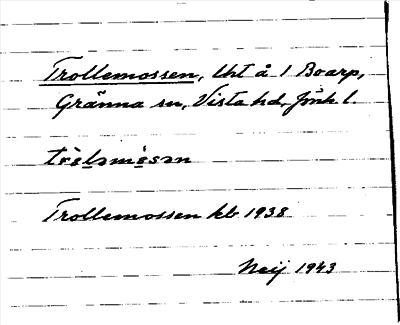 Trollemossen, lht å 1 Boarp,
Gränna sn, Vista hd, Jönk l.
Trollemossen kb 1938
Neij 1943